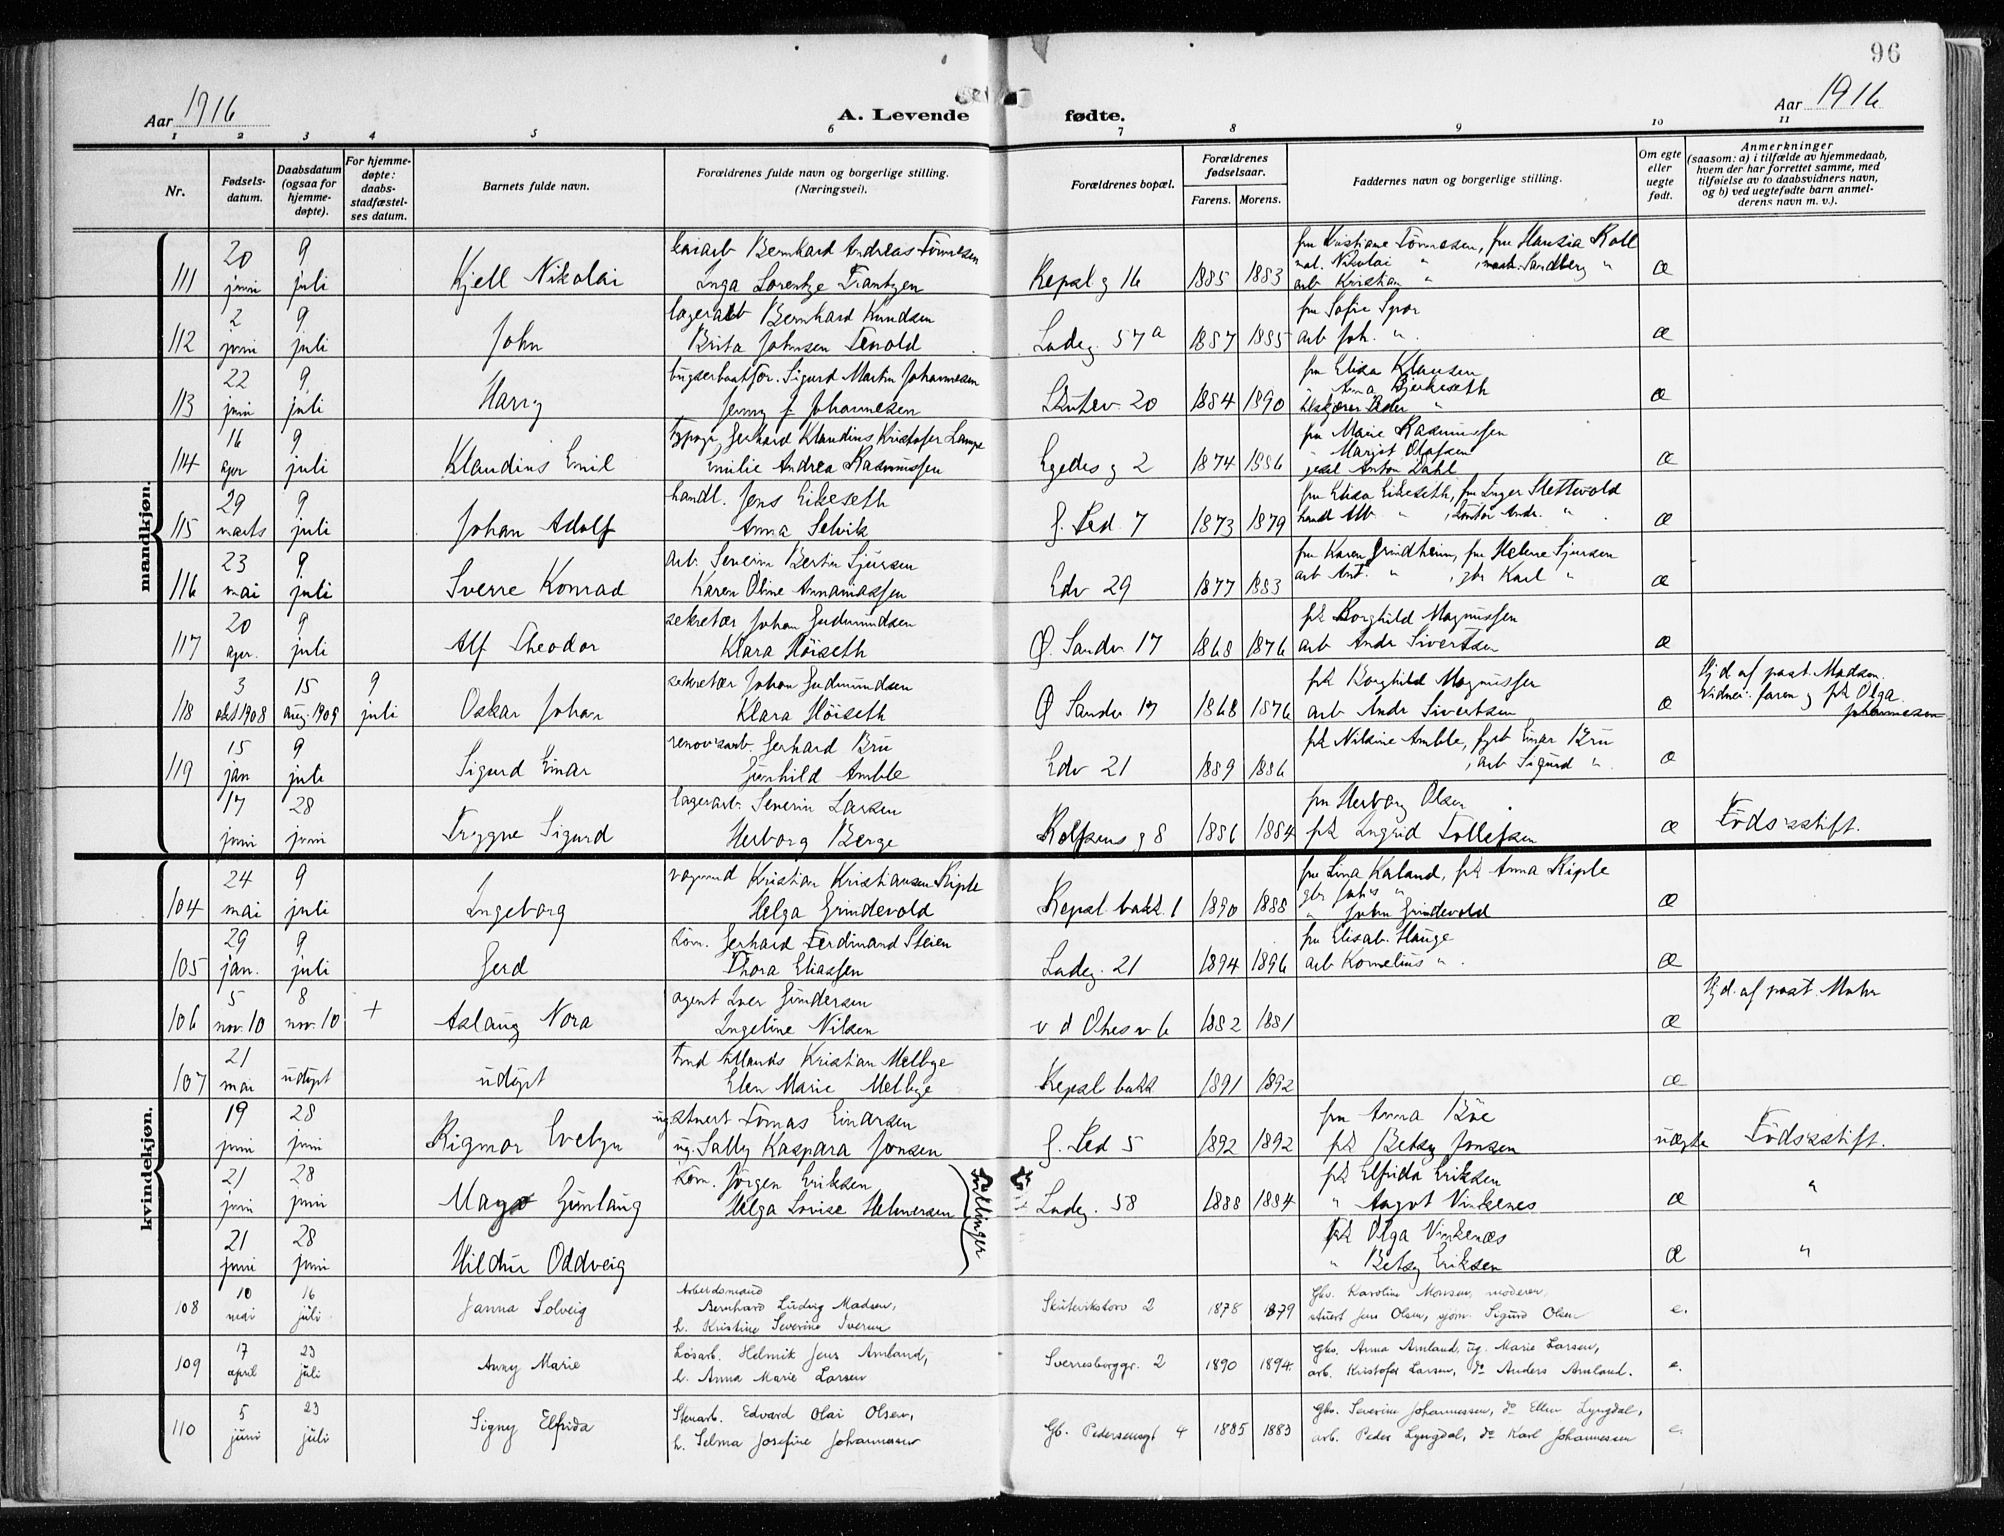 96
Aar 1916
A. Levende fødte.
Aar 1916
1 2 3 4 5 6 7 8 9 10 11
Nr.
Fødsels-
datum.
Daabsdatum
(ogsaa for
hjemme-
døpte).
For hjemme-
døpte:
daabs-
stadfæstel-
ses datum.
Barnets fulde navn.
Forældrenes fulde navn og borgerlige stilling.
(Næringsvei).
Forældrenes bopæl.
Forældrenes
fødselsaar.
Farens. Morens.
Faddernes navn og borgerlige stilling.
Om egte
eller
uegte
født.
Anmerkninger
(saasom: a) i tilfælde av hjemmedaab,
hvem der har forrettet samme, med
tilføielse av to daabsvidners navn,
og b) ved uegtefødte barn anmel-
derens navn m. v.).
mandkjøn.
111 20 juni 9 juli Kjell Nikolai
Bernhard Andreas Tønnesen
Inga Lorentze Frantzen
Repsl g 16 1885 1883
fru Kristiane Tønnesen, fru Hansia Roll
mat. Nikolai " Sandberg "
arb Kristian "
æ
112 2 juni 9 juli John
lagerarb Bernhard Knudsen
Brita Johnsen Tenold
Ladeg. 57a 1887 1885
fru Sofie Spor
arb Joh. "
æ
113 22 juni 9 juli Harry
Sigurd Martin Johannesen
Jenny f. Johannesen
Skutev. 20 1884 1890
fru Elisa Klausen
" Anna Bjerkeseth
æ
114 16 apr 9 juli Klaudius Emil
typogr Gerhard Klaudius Kristofer Lampe
Emilie Andrea Rasmussen
Egedes g 2 1874 1886
fru Marie Rasmussen
" Margit Olafsen
Anton Dahl
æ
115 29 marts 9 juli Johan Adolf
handl. Jens Eikeseth
Anna Selvik
g. Sed. 7 1873 1879
fru Elisa Eikeseth, fru Inger Stettvold
handl Alb. " , kontor Andr. "
æ
116 23 mai 9 juli Sverre Konrad
arb. Severin Bertin Sjursen
Karen Oline Annaniassen
Edv 29 1877 1883
fru Karen Grindheim, fru Helene Sjursen
arb Ant. " , gbr Karl "
æ
117 20 apr. 9 juli Alf Theodor
sekretær Johan Gudmundsen
Klara Høiseth
Ø. Sandv 17 1868 1876
frk Borghild Magnussen
arb Andr Sivertsen
æ
118 3 okt 1908 15 aug. 1909 9 juli Oskar Johan
sekretær Johan Gudmundsen
Klara Høiseth
Ø Sandv 17 1868 1876
frk Borghild Magnussen
arb Andr Sivertsen
æ
Hj d. af past. Madsen.
Vidner: faren og frk Olga
Johannesen
119 15 jan 9 juli Sigurd Einar
renov.arb. Gerhard Bru
Gunhild Amble
Edv 21 1889 1886
frk Nikline Amble, fyrb Einar Bru
, arb Sigurd "
æ
17 juni 28 juni Trygve Sigurd
lagerarb. Severin Larsen
Herborg Berge
Rolfsens g 8 1886 1884
fru Herborg Olsen
frk Ingrid Tollefsen
æ
Fødsstift.
kvindekjøn.
104 24 mai 9 juli Ingeborg
vognmd Kristian Kristiansen Riple
Helga Grindevold
Repsl bakk. 1 1890 1888
fru Lina Kaland, frk Anna Riple
gbr Joh's "
" John Grindevold
æ
105 29 jan. 9 juli Gerd
tom. Gerhard Ferdinand Steien
Thora Eliassen
Ladeg. 21 1894 1896
fru Elisab. Hauge
arb Kornelius "
æ
106 5 nov. 10 8 nov. 10 + Aslaug Nora
agent Iver Gundersen
Ingeline Nilsen
v d Ohes v 6 1882 1881
æ
Hj d. af past. Mohr
107 21 mai udøpt udøpt
Kristian Melbye
Elen Marie Melbye
Repsl bakk 1891 1892
æ
19 juni 28 juni Rigmor Evelyn
ug. stuert Tomas Einarsen
ug. Sally Kaspara Jonsen
g. Sed 5 1892 1892
fru Anna Bøe
frk Betsy Jonsen
uægte
Fødsstift.
21 juni 28 juni Magn Gunlaug
tom. Jørgen Eriksen
Helga Lovise Helmersen
Tvillinger
Ladeg. 58 1888 1884
frk Elfrida Eriksen
" Aagot Vinkenes
æ "
21 juni 28 juni Hildur Oddveig
frk Olga Vinkenæs
" Betsy Eriksen
æ "
108 10 mai 16 juli Janna Solveig
Arbeidsmand
Bernhard Ludvig Madsen,
h. Kristine Severine Iversen
Skutevikstorv 2 1878 1879
Ghs. Karoline Monsen, moderen,
stuert Jens Olsen, sjøm. Sigurd Olsen
e.
109 17 april 23 juli Anny Marie
Løsarb. Helmik Jens Amland,
h. Anna Marie Larsen
Sverresborggt. 2 1890 1894.
Ghs. Anna Amland, ug. Marie Larsen,
arb. Kristofer Larsen, do Anders Amland.
e.
110 5 juni 23 juli Signy Elfrida
Stenarb. Edvard Olai Olsen,
h. Selma Josefine Johannessen
Gb. Pedersensgt 4 1885 1883
Ghs. Severine Johannessen, do Ellen Lyngdal,
arb. Peder Lyngdal, do Karl Johannessen
e.